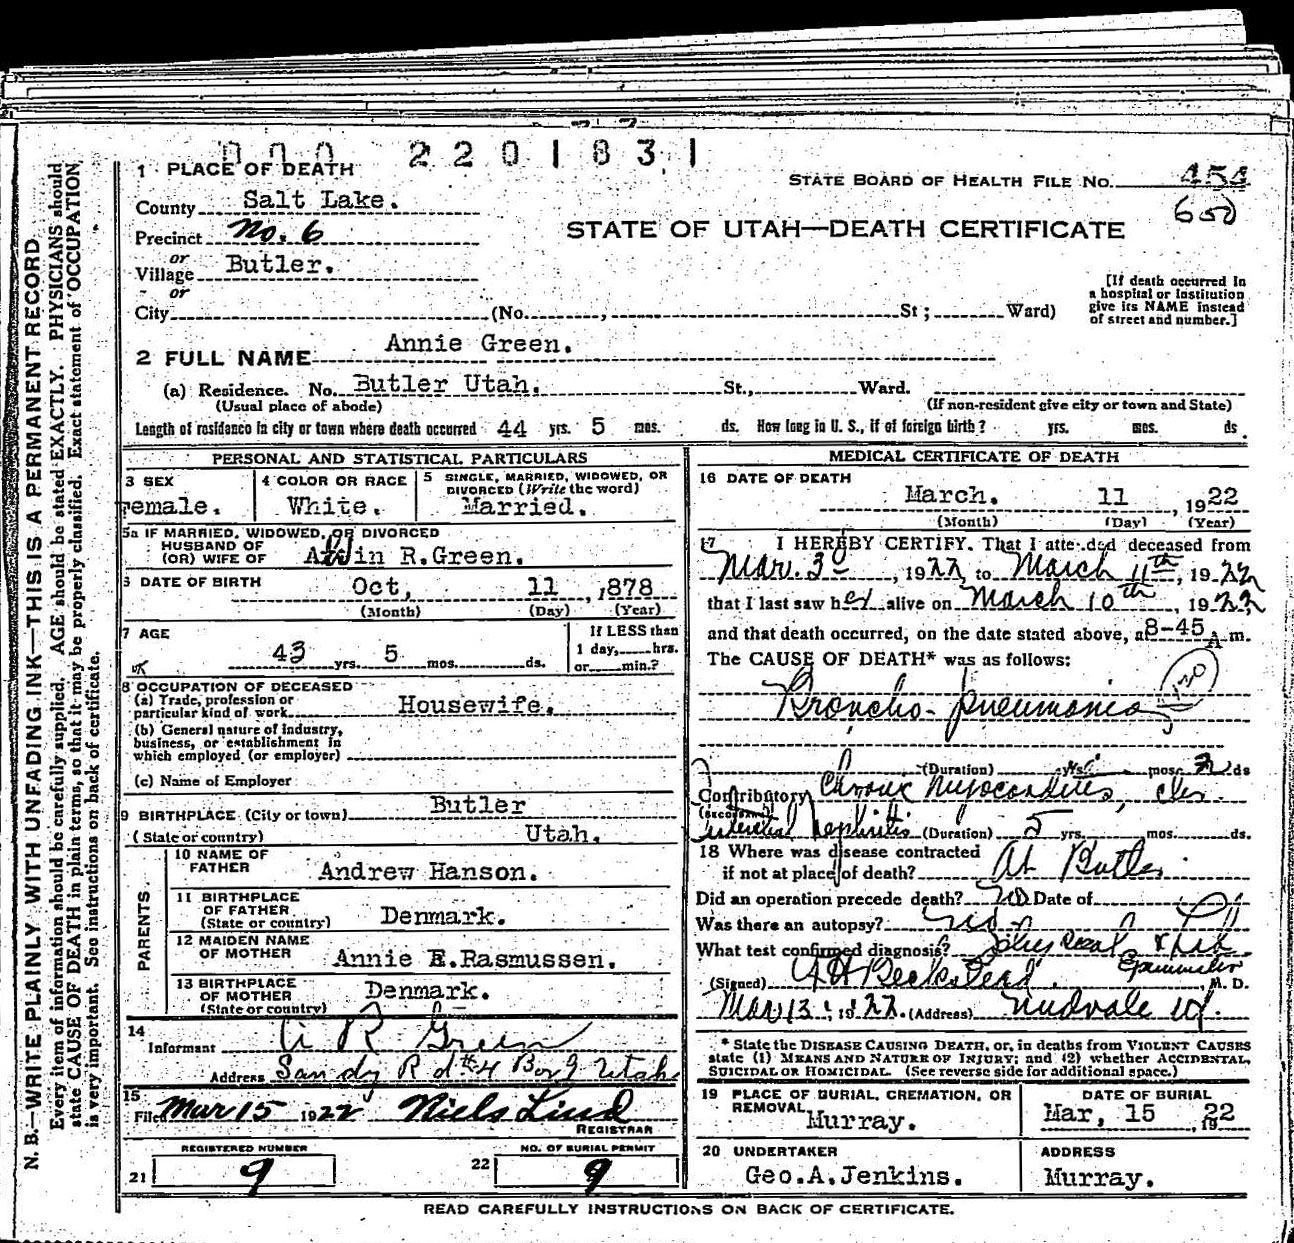 2201831
1 PLACE OF DEATH
STATE BOARD OF HEALTH FILE NO. 454
650
County Salt Lake.
Precinct No. 6
STATE OF UTAH—DEATH CERTIFICATE
or
Village Butler.
or
City (No. , St; Ward)
[If death occurred in
a hospital or institution
give its NAME instead
of street and number.]
2 FULL NAME Annie Green.
(a) Residence. No. Butler Utah. St., Ward.
(Usual place of abode) (If non-resident give city or town and State)
Length of residence in city or town where death occurred 44 yrs. 5 mos. ds. How long in U. S., if of foreign birth? yrs. mos. ds.
PERSONAL AND STATISTICAL PARTICULARS
3 SEX
emale.
4 COLOR OR RACE
White.
5 SINGLE, MARRIED, WIDOWED, OR
DIVORCED (Write the word)
Married.
5a IF MARRIED, WIDOWED, OR DIVORCED
HUSBAND OF
(OR) WIFE OF R.Green.
6 DATE OF BIRTH
Oct, 11 ,1878
(Month) (Day) (Year)
7 AGE
43 yrs. 5 mos. ds.
If LESS than
1 day, hrs.
or min.?
8 OCCUPATION OF DECEASED
(a) Trade, profession or
particular kind of work Housewife.
(b) General nature of industry,
business, or establishment in
which employed (or employer)
(c) Name of Employer
9 BIRTHPLACE (City or town) Butler
(State or country) Utah.
PARENTS
10 NAME OF
FATHER Andrew Hanson.
11 BIRTHPLACE
OF FATHER
(State or country) Denmark.
12 MAIDEN NAME
OF MOTHER Annie E.Rasmussen.
13 BIRTHPLACE
OF MOTHER
(State or country) Denmark.
14
Informant A R Green
Address Sandy R d #4 Box Utah
15
Filed Mar 15 1922 Niels Lind
REGISTRAR
REGISTERED NUMBER
21 9
NO. OF BURIAL PERMIT
22 9
MEDICAL CERTIFICATE OF DEATH
16 DATE OF DEATH
March. 11 , 1922
(Month) (Day) (Year)
17 I HEREBY CERTIFY. That I attended deceased from
Mar. 3d , 1922, to March 11th, 1922
that I last saw her alive on March 10th, 1922
and that death occurred, on the date stated above, at 8-45 A.m.
The CAUSE OF DEATH* was as follows:
Broncho-pneumonia
(Duration) yrs. mos. ds
Contributory Chronic Myocarditis,
(SECONDARY)
Nephritis (Duration) 5 yrs. mos. ds.
18 Where was disease contracted
if not at place of death? At Butler
Did an operation precede death? no Date of
Was there an autopsy? no
What test confirmed diagnosis? Physical & Lab
(Signed) A H Beckstead , M. D.
Mar 13, 1922 (Address) Midvale Ut.
* State the DISEASE CAUSING DEATH, or, in deaths from VIOLENT CAUSES
state (1) MEANS AND NATURE OF INJURY; and (2) whether ACCIDENTAL,
SUICIDAL OR HOMICIDAL. (See reverse side for additional space.)
19 PLACE OF BURIAL, CREMATION, OR
REMOVAL
Murray.
DATE OF BURIAL
Mar, 15 , 1922
20 UNDERTAKER
Geo.A.Jenkins.
ADDRESS
Murray.
READ CAREFULLY INSTRUCTIONS ON BACK OF CERTIFICATE.
N. B.—WRITE PLAINLY, WITH UNFADING INK—THIS IS A PERMANENT RECORD
Every item of information should be carefully supplied. AGE should be stated EXACTLY. PHYSICIANS should
state CAUSE OF DEATH in plain terms, so that it may be properly classified. Exact statement of OCCUPATION
is very important. See instructions on back of certificate.